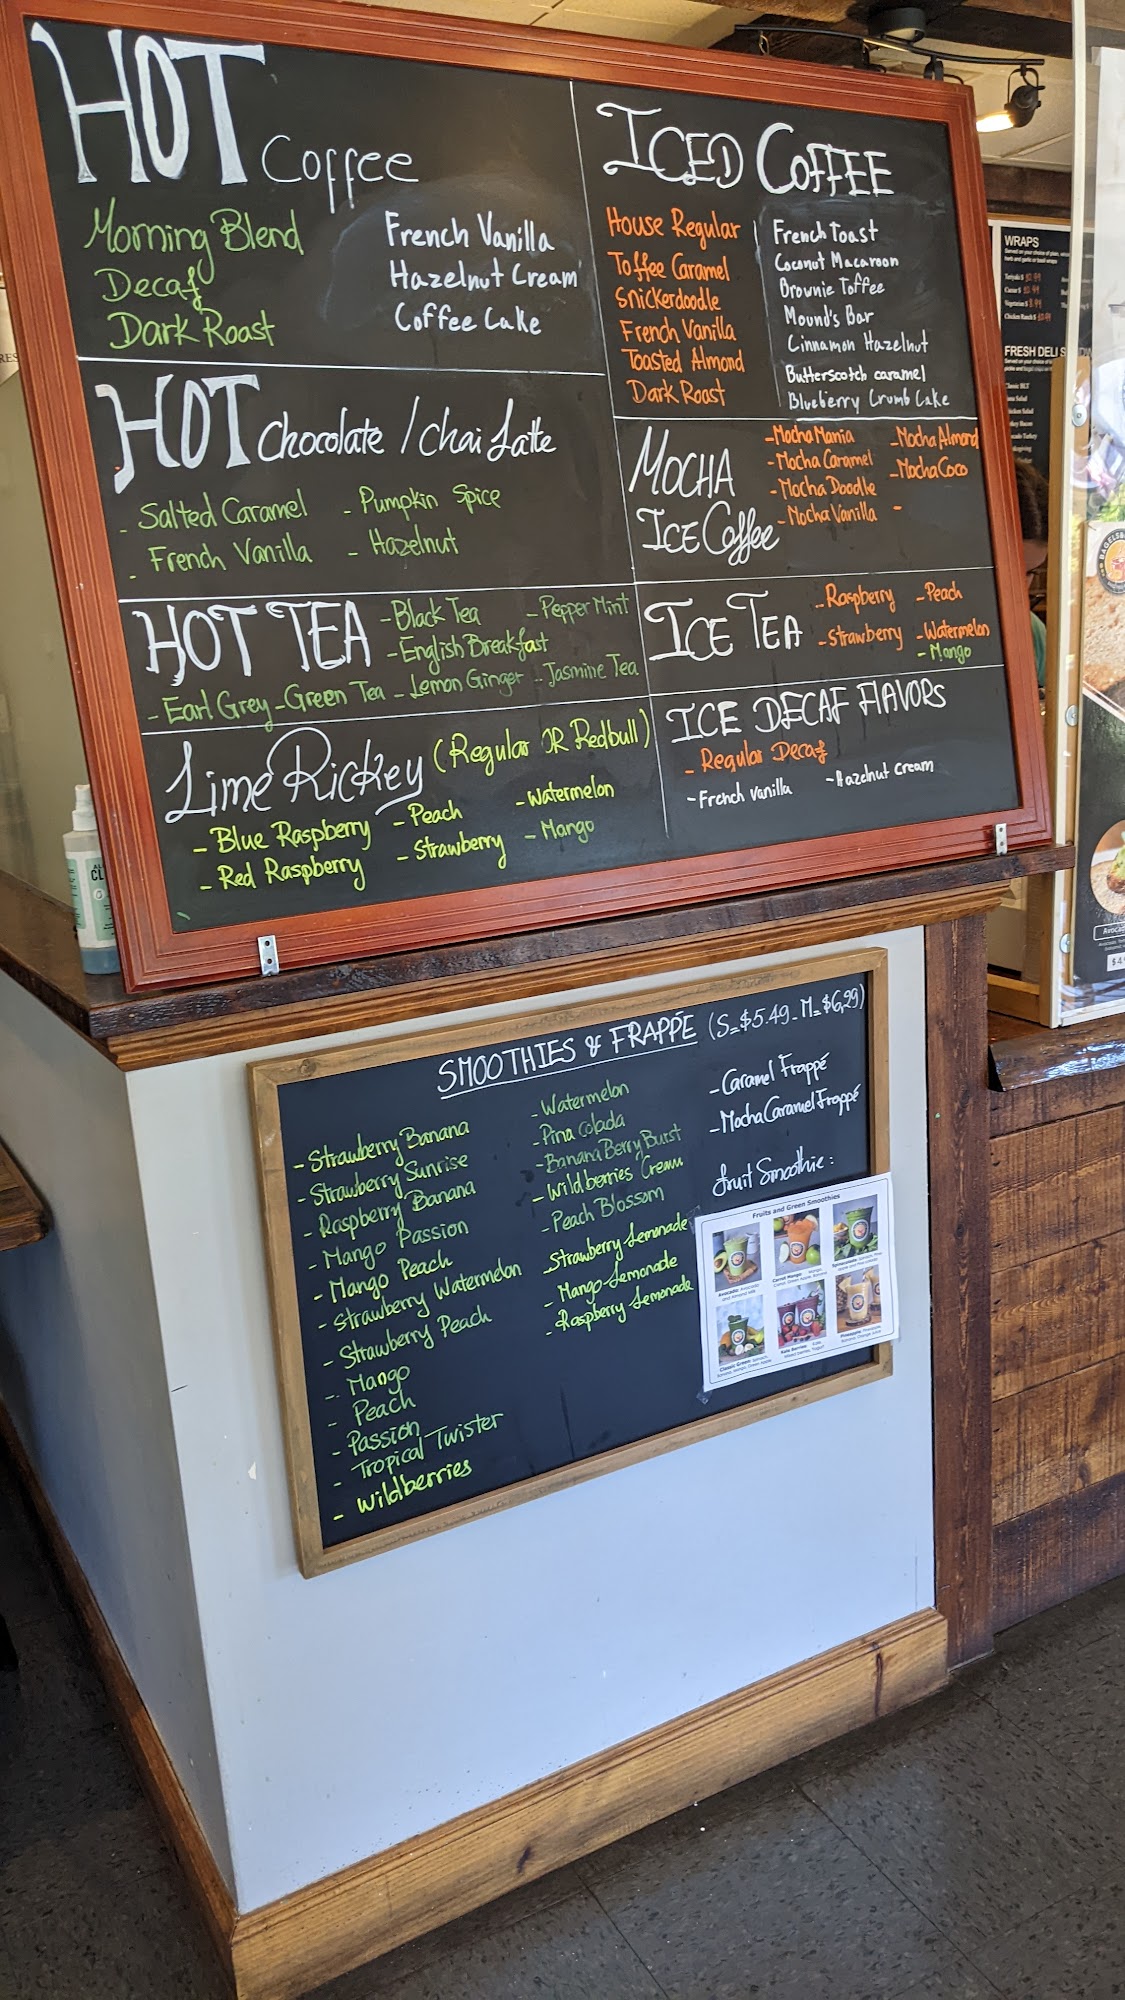 HOT Coffee
Morning Blend
Decaf
Dark Roast
French Vanilla
Hazelnut Cream
Coffee Cake
HOT Chocolate / Chai Latte
- Salted Caramel
- French Vanilla
- Pumpkin Spice
- Hazelnut
HOT TEA
- Black Tea
- Pepper Mint
- English Breakfast
- Earl Grey - Green Tea - Lemon Ginger - Jasmine Tea
Lime Rickey (Regular OR Redbull)
- Blue Raspberry
- Red Raspberry
- Peach
- Strawberry
- Watermelon
- Mango
ICED COFFEE
House Regular
Toffee Caramel
Snickerdoodle
French Vanilla
Toasted Almond
Dark Roast
French Toast
Coconut Macaroon
Brownie Toffee
Mound's Bar
Cinnamon Hazelnut
Butterscotch caramel
Blueberry Crumb Cake
MOCHA
ICE Coffee
- Mocha Mania
- Mocha Caramel
- Mocha Doodle
- Mocha Vanilla
- Mocha Almond
- Mocha Coco
-
ICE TEA
- Raspberry
- Strawberry
- Peach
- Watermelon
- Mango
ICE DECAF FLAVORS
- Regular Decaf
- French vanilla
- Hazelnut Cream
WRAPS
FRESH DELI
SMOOTHIES & FRAPPÉ (S=$5.49 - M=$6,29)
- Strawberry Banana
- Strawberry Sunrise
- Raspberry Banana
- Mango Passion
- Mango Peach
- Strawberry Watermelon
- Strawberry Peach
- Mango
- Peach
- Passion
- Tropical Twister
- Wildberries
- Watermelon
- Pina Colada
- Banana Berry Burst
- Wildberries Cream
- Peach Blossom
- Strawberry Lemonade
- Mango Lemonade
- Raspberry Lemonade
- Caramel Frappé
- Mocha Caramel Frappé
Fruit Smoothie:
Fruits and Green Smoothies